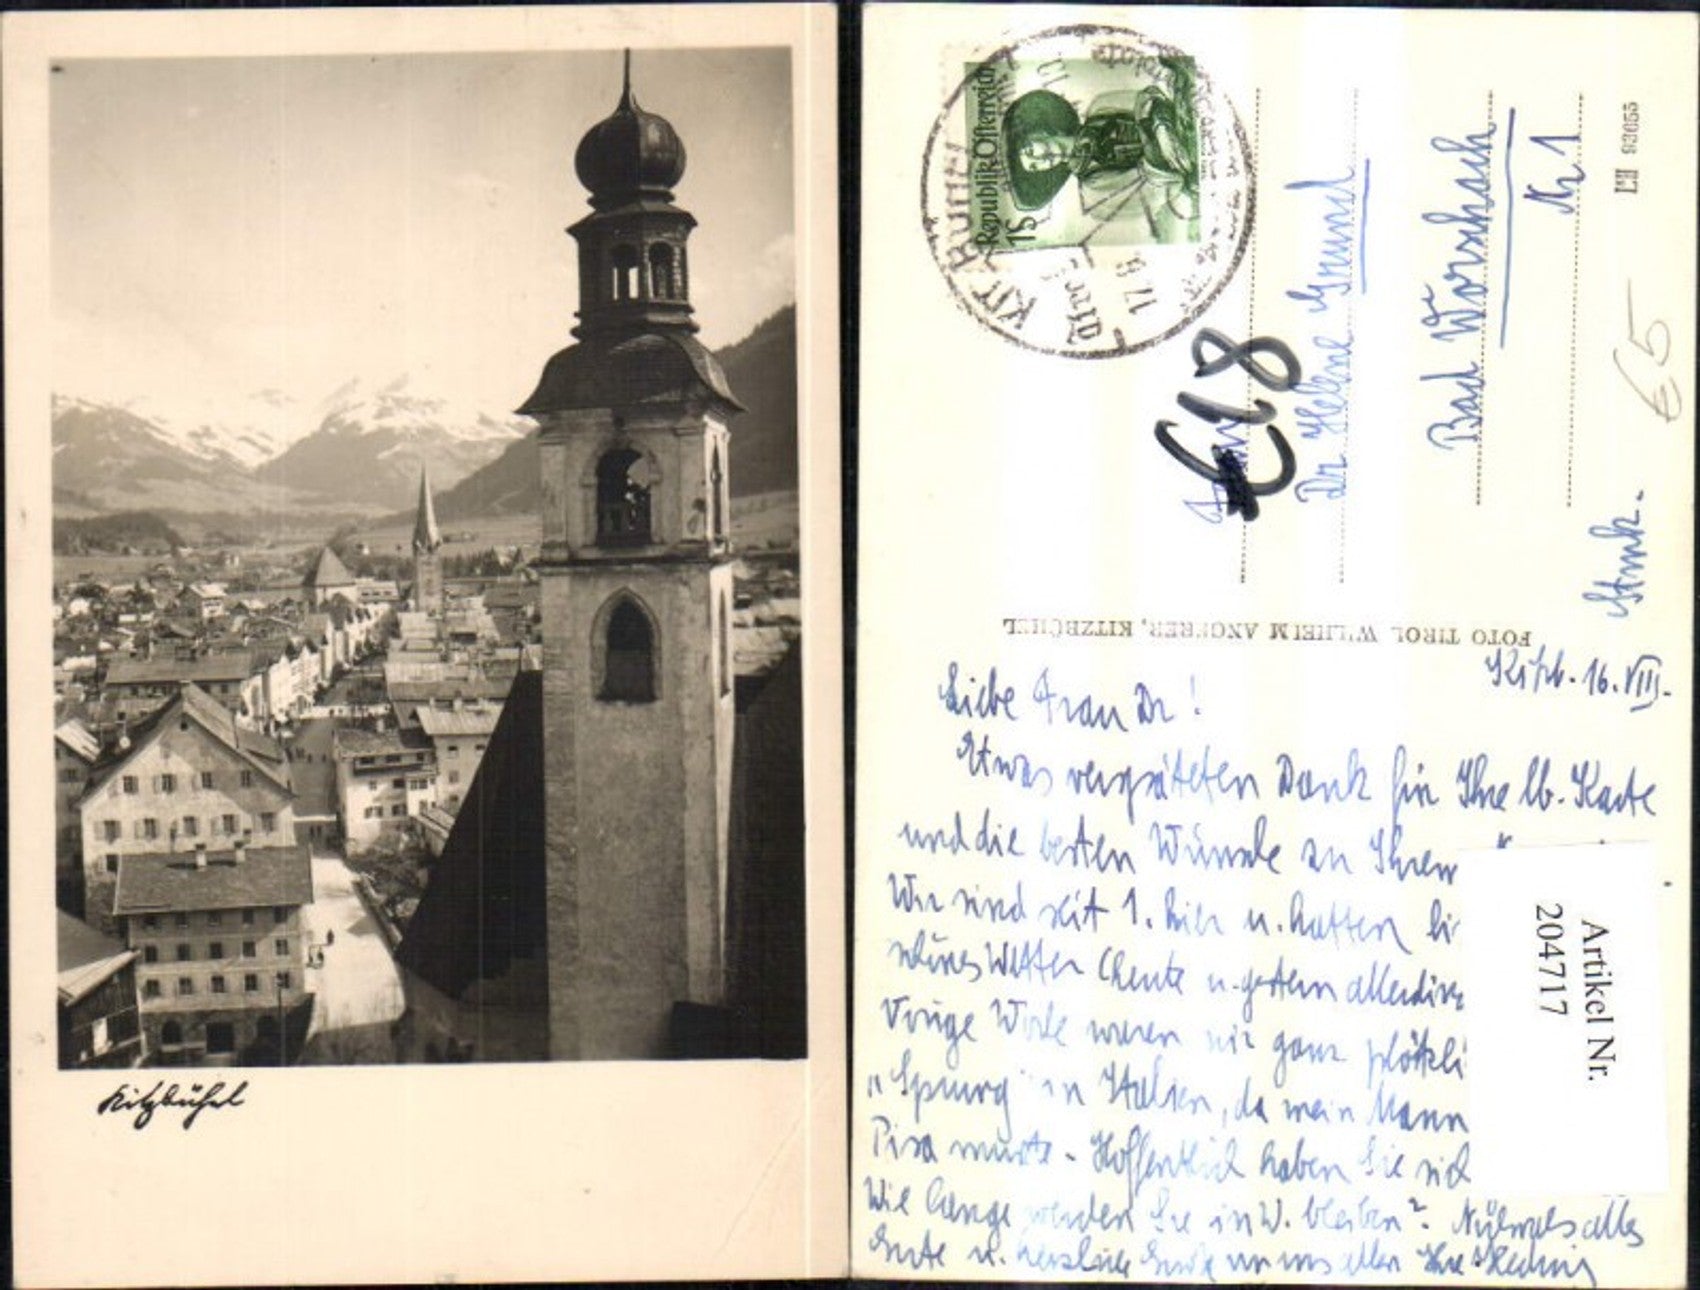 Kitzbühel
Republik Österreich
1S
KITZBÜHEL
17. 8.
€18
Frau
Dr Helene Grund
Bad Wörschach
Nr 1
Stmk.
LH 93655
€5
FOTO TIROL WILHELM ANGERER, KITZBÜHEL
Kitzb. 16. VIII.
Liebe Frau Dr!
Etwas verspäteten Dank für Ihre lb. Karte
und die besten Wünsche zu Ihrem
Wir sind seit 1. hier u. hatten
schönes Wetter (heute u. gestern
Vorige Woche waren wir ganz plötzli
"Sprung" in Italien, da mein Mann
Pisa musste. Hoffentlich haben Sie sich
Wie lange werden Sie in W. bleiben? Nochmals alles
Gute u. herzliche Grüße von uns allen Ihre Hedwig
Artikel Nr.
204717